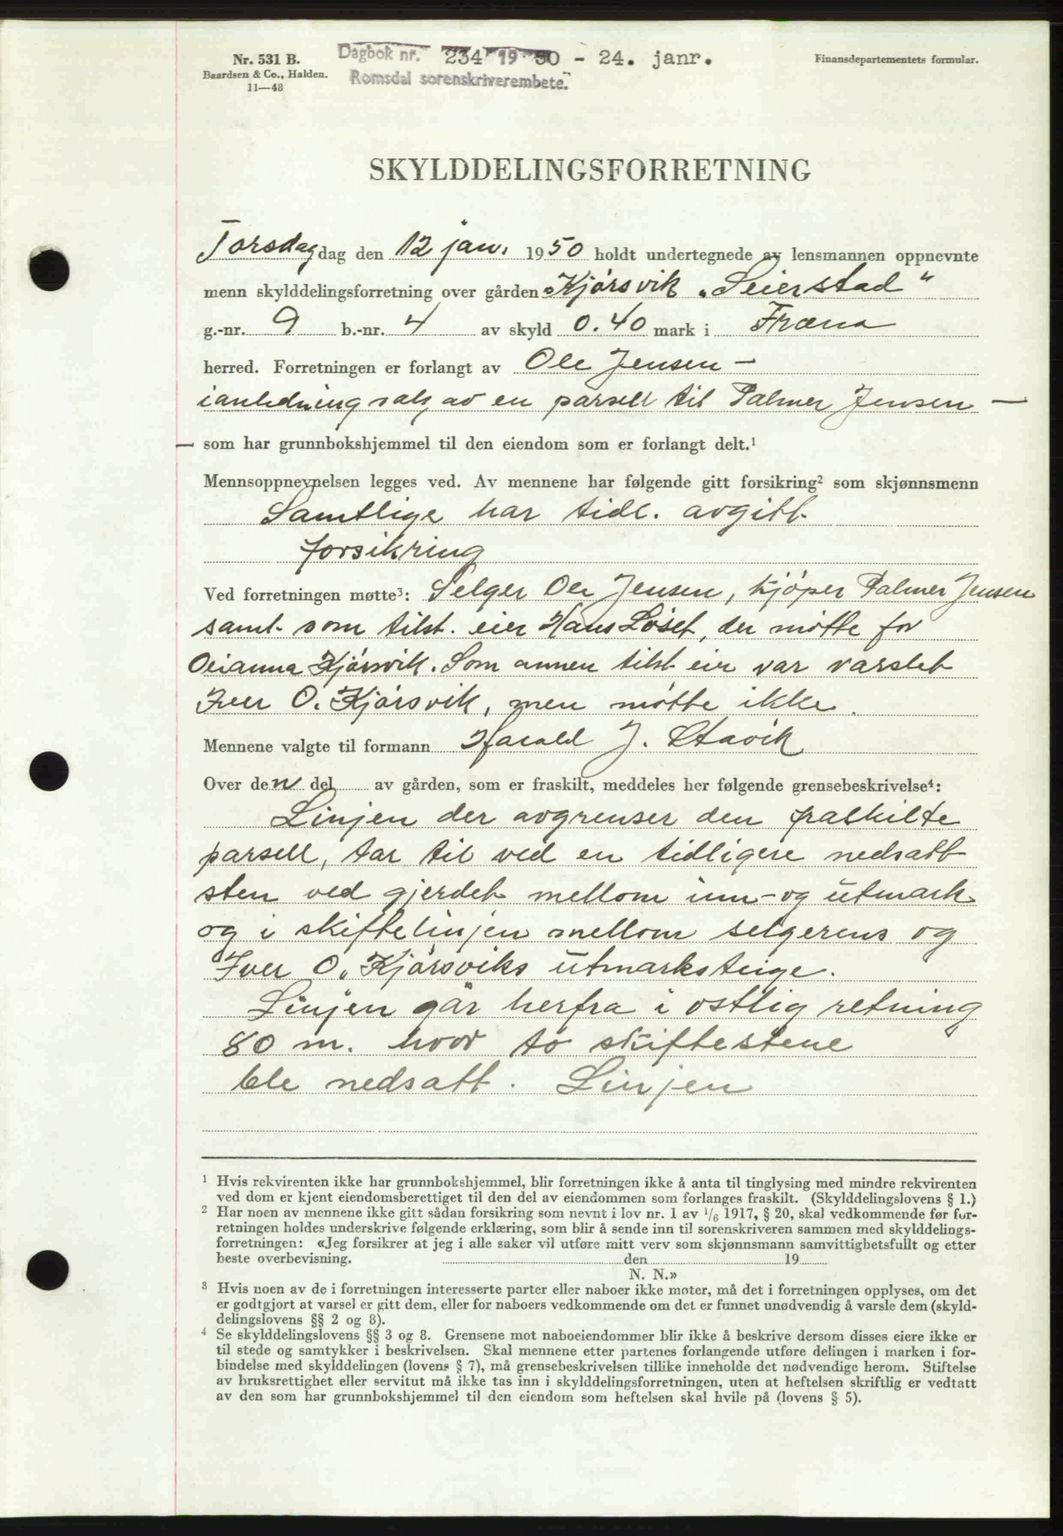 Nr. 531 B.
Baardsen & Co., Halden.
11—48
Dagbok nr. 234 1950 - 24. janr.
Romsdal sorenskriverembete.
Finansdepartementets formular.
SKYLDDELINGSFORRETNING
Torsdag dag den 12 jan. 1950 holdt undertegnede av lensmannen oppnevnte
menn skylddelingsforretning over gården Kjørsvik „Seierstad“
g.-nr. 9 b.-nr. 4 av skyld 0.40 mark i Fræna
herred. Forretningen er forlangt av Ole Jensen —
i anledning salg av en parsell til Palmer Jensen —
— som har grunnbokshjemmel til den eiendom som er forlangt delt.¹
Mennsoppnevnelsen legges ved. Av mennene har følgende gitt forsikring² som skjønnsmenn
Samtlige har tidl. avgitt
forsikring
Ved forretningen møtte³: Selger Ole Jensen, kjøper Palmer Jensen
samt som tilst. eier Hans Løset, der møtte for
Oeianna Kjørsvik. Som annen tilst eier var varslet
Iver O. Kjørsvik, men møtte ikke.
Mennene valgte til formann Harald J. Stavik
Over den del av gården, som er fraskilt, meddeles her følgende grensebeskrivelse⁴:
Linjen der avgrenser den fraskilte
parsell, tar til ved en tidligere nedsatt
sten ved gjerdet mellom inn- og utmark
og i skiftelinjen mellom selgerens og
Iver O. Kjørsviks utmarksteige.
Linjen går herfra i østlig retning
80 m. hvor to skiftestene
ble nedsatt. Linjen
¹ Hvis rekvirenten ikke har grunnbokshjemmel, blir forretningen ikke å anta til tinglysing med mindre rekvirenten
ved dom er kjent eiendomsberettiget til den del av eiendommen som forlanges fraskilt. (Skylddelingslovens § 1.)
² Har noen av mennene ikke gitt sådan forsikring som nevnt i lov nr. 1 av ¹/₆ 1917, § 20, skal vedkommende før for-
retningen holdes underskrive følgende erklæring, som blir å sende inn til sorenskriveren sammen med skylddelings-
forretningen: «Jeg forsikrer at jeg i alle saker vil utføre mitt verv som skjønnsmann samvittighetsfullt og etter
beste overbevisning. den 19
N. N.»
³ Hvis noen av de i forretningen interesserte parter eller naboer ikke møter, må det i forretningen opplyses, om det
er godtgjort at varsel er gitt dem, eller for naboers vedkommende om det er funnet unødvendig å varsle dem (skyld-
delingslovens §§ 2 og 8).
⁴ Se skylddelingslovens §§ 3 og 8. Grensene mot naboeiendommer blir ikke å beskrive dersom disses eiere ikke er
til stede og samtykker i beskrivelsen. Skal mennene etter partenes forlangende utføre delingen i marken i for-
bindelse med skylddelingen (lovens § 7), må grensebeskrivelsen tillike inneholde det nødvendige herom. Stiftelse
av bruksrettighet eller servitut må ikke tas inn i skylddelingsforretningen, uten at heftelsen skriftlig er vedtatt
av den som har grunnbokshjemmel til den eiendom som heftelsen skal hvile på (lovens § 5).